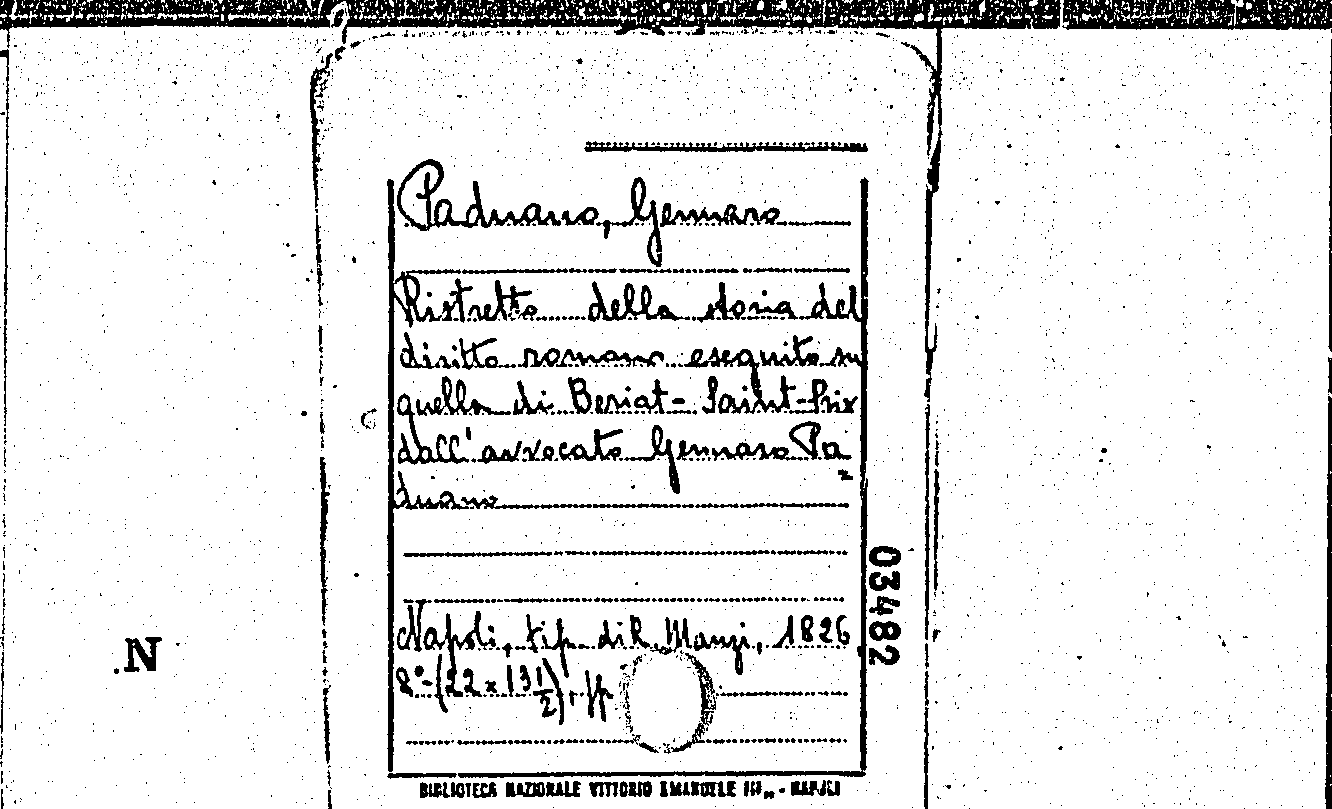 Paduano, Gennaro
Ristretto della storia del
diritto romano eseguito su
quella di Beriat-Saint-Prix
dall'avvocato Gennaro Pa=
duano
03482
Napoli, tip. di R. Manzi, 1826
N
8°-(22x13 1/2), pp.
BIBLIOTECA NAZIONALE VITTORIO EMANUELE III„ - NAPOLI